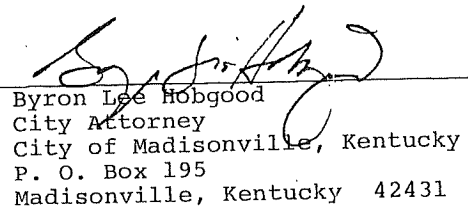 Byron Lee Hobgood
City Attorney
City of Madisonville, Kentucky
P. O. Box 195
Madisonville, Kentucky  42431